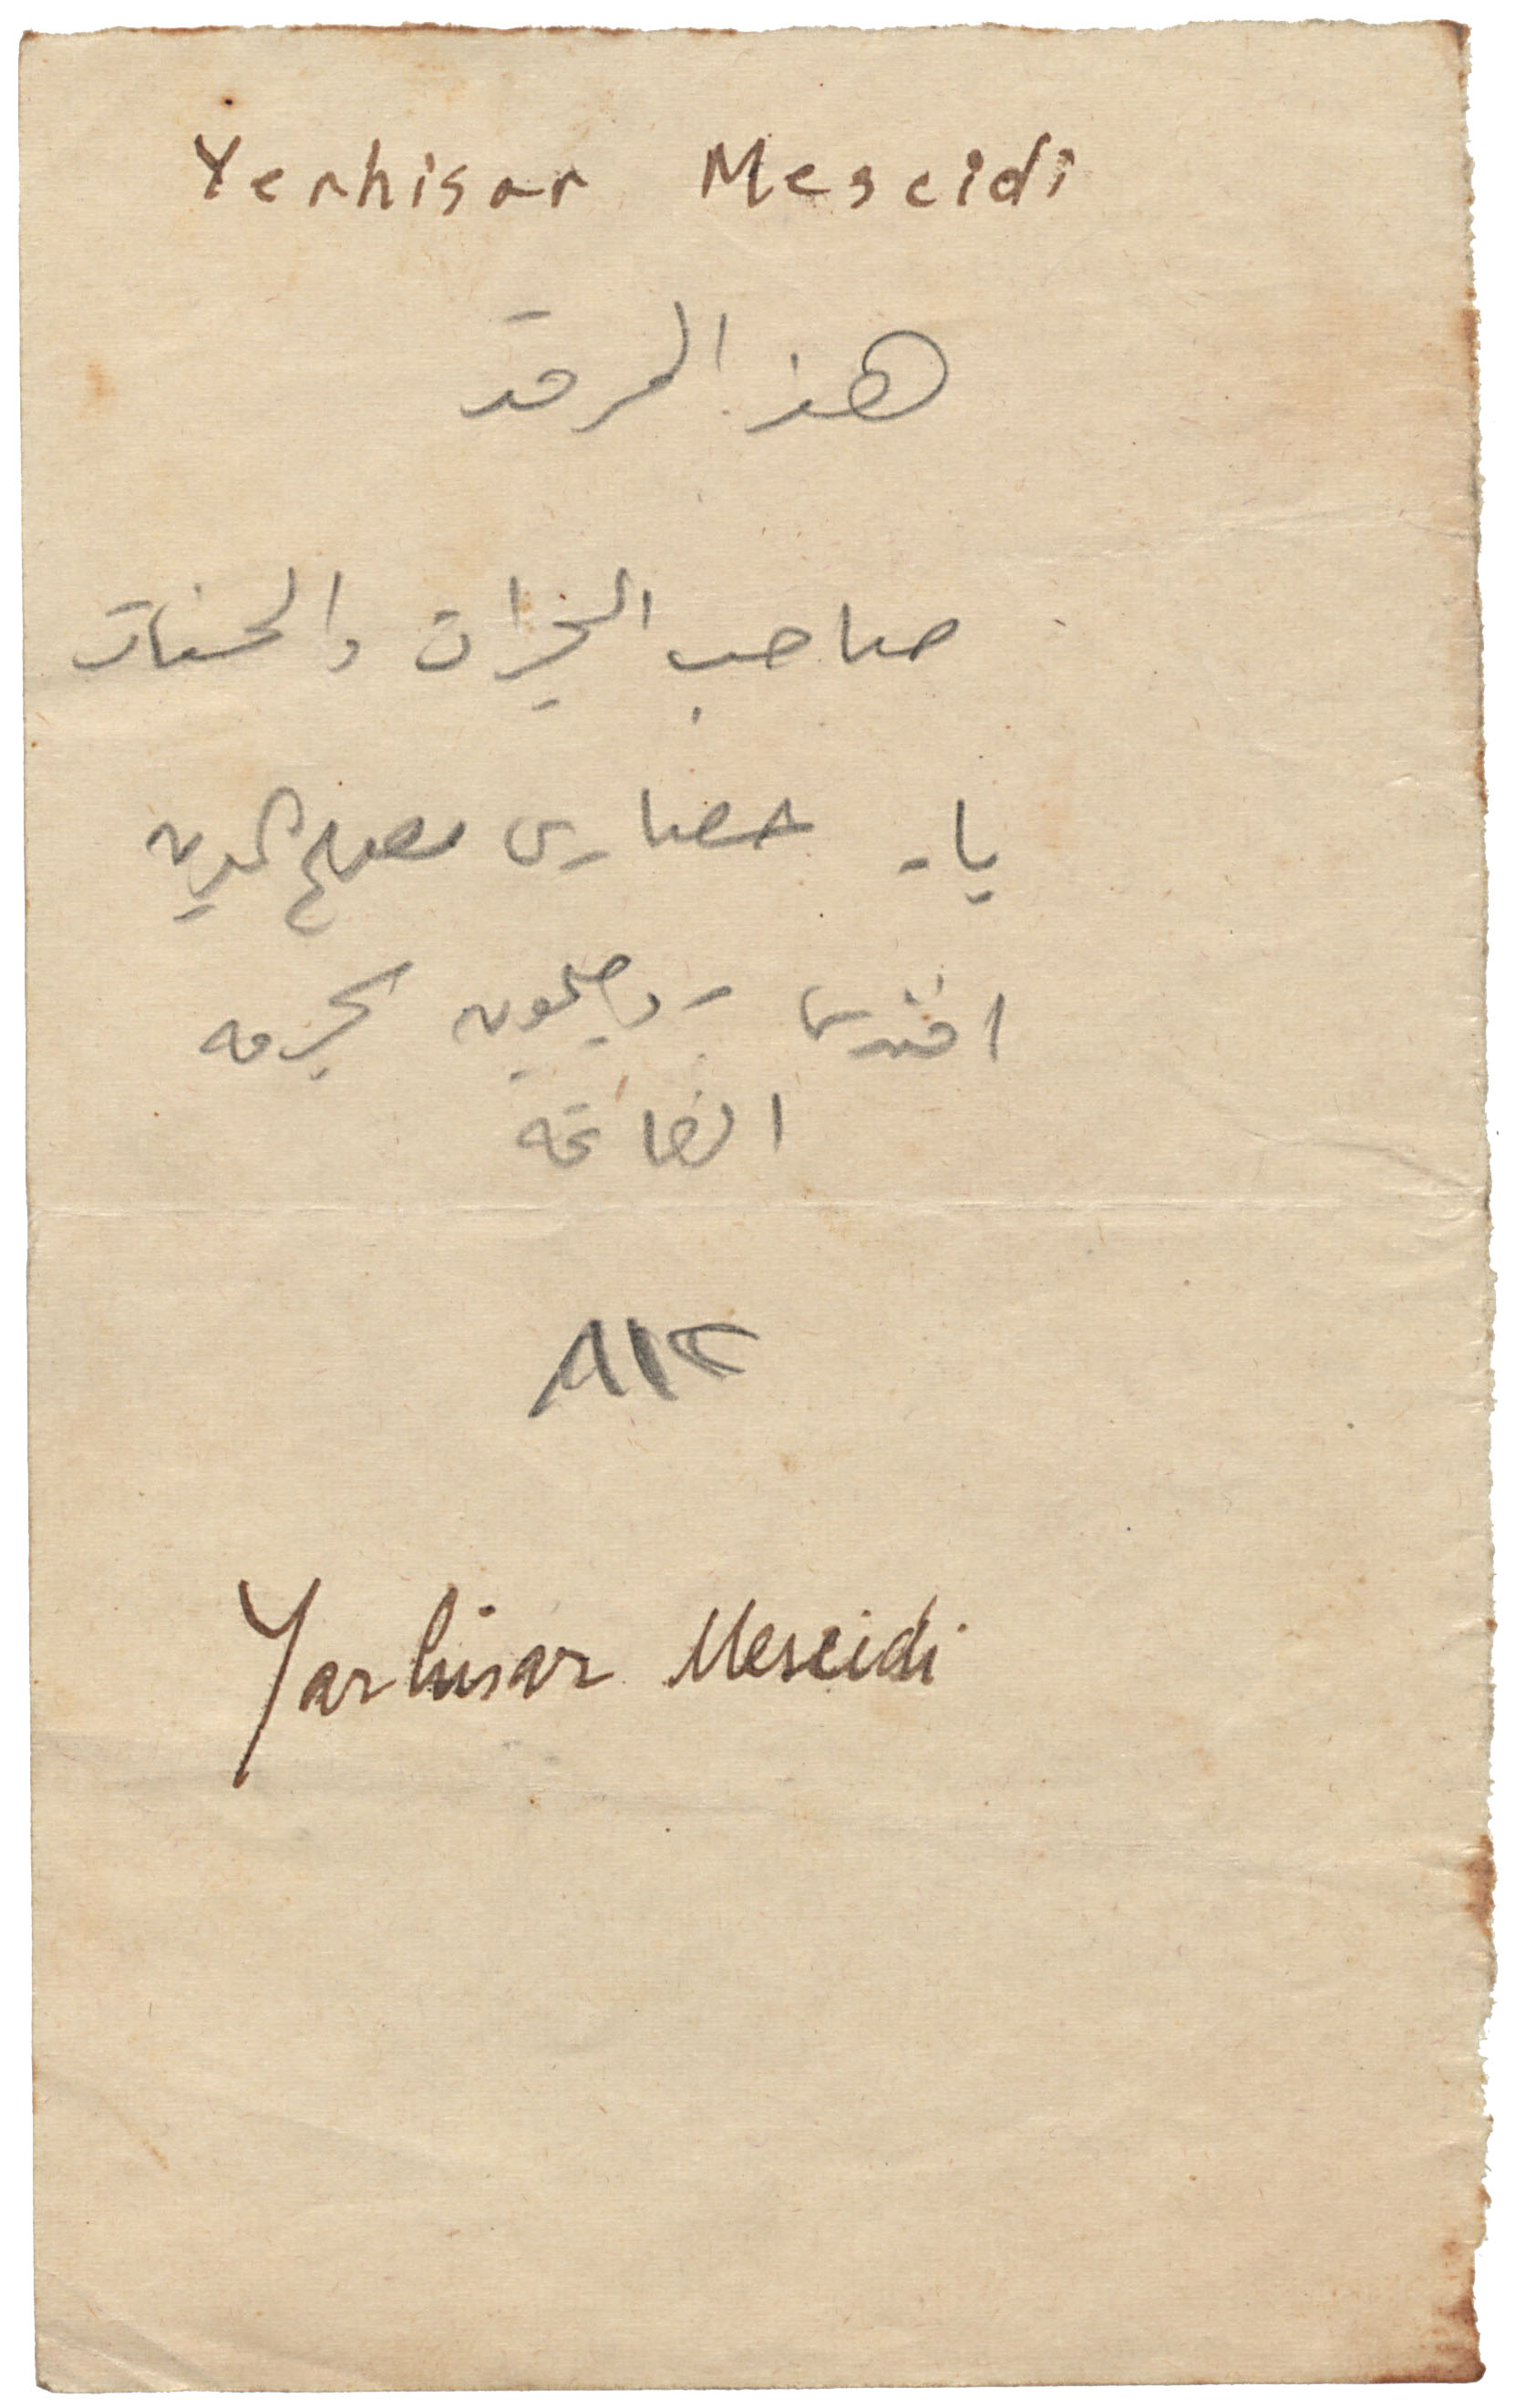 Yerhisar Mescidi
هذ المرقد
صاحب الخيرات والحسنات
يار حصارى مصلح الدين
افندى روحيچون
الفاتحه
٨١٢
Yarhisar Mescidi